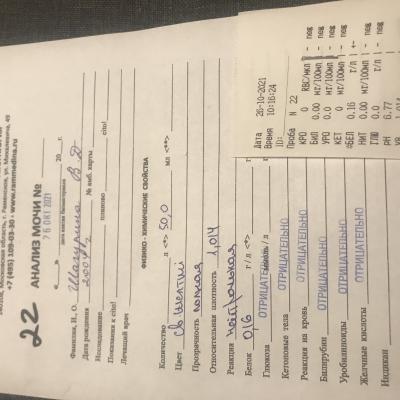 140100, Московская область, г. Раменское, ул. Михалевича, 49
+7 (495) 109-03-30 • www.rammedina.ru
22 АНАЛИЗ МОЧИ №
26 ОКТ 2021
20 г.
дата взятия биоматериала
Фамилия, И., О. В. Д
Дата рождения № амб. карты
Исследование планово cito!
Показания к cito!
Лечащий врач
ФИЗИКО - ХИМИЧЕСКИЕ СВОЙСТВА
Количество л <*> 50,0 мл <**>
Цвет Св желтый
Прозрачность полная
Относительная плотность 1,014
Реакция нейтральная
Белок 0,16 г / л <*>
Глюкоза ОТРИЦАТЕЛЬНО
Кетоновые тела ОТРИЦАТЕЛЬНО
Реакция на кровь ОТРИЦАТЕЛЬНО
Билирубин ОТРИЦАТЕЛЬНО
Уробилиноиды ОТРИЦАТЕЛЬНО
Желчные кислоты ОТРИЦАТЕЛЬНО
Индикан
Дата 26-10-2021
Время 10:16:24
ID:
Проба N 22
КРО 0 RBC/мкл - neg
БИЛ 0.00 мг/100мл - neg
УРО 0 мг/100мл - neg
КЕТ 0.00 мг/100мл - neg
*БЕЛ 0.16 г/л
НИТ 0.00 мг/100мл - neg
ГЛЮ 0.0 - neg
PH 6.77